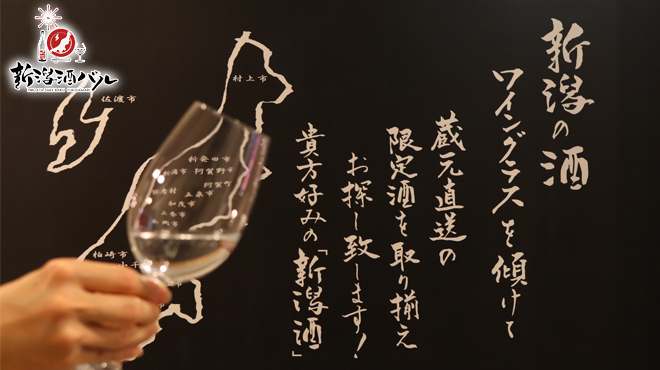 新潟の酒
ワイングラスを傾けて
蔵元直送の
限定酒を取り揃え
お探し致します！
貴方好みの「新潟酒」
新潟酒バル
村上市
佐渡市
新発田市
阿賀野市
阿賀町
五泉市
加茂市
三条市
柏崎市